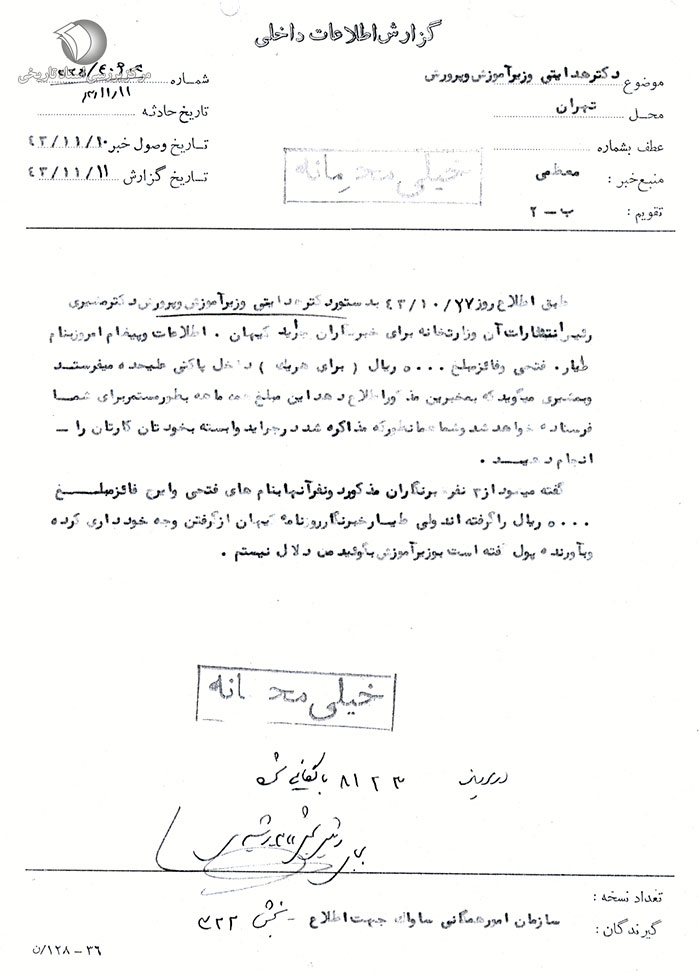 گزارش اطلاعات داخلی
مرکز بررسی اسناد تاریخی
موضوع دکتر هدایتی وزیر آموزش و پرورش
شماره
محل تهران
۴۳/۱۱/۱۱
تاریخ حادثه
عطف بشماره
تاریخ وصول خبر ۴۳/۱۱/۱۰
منبع خبر : معظمی
تاریخ گزارش ۴۳/۱۱/۱۱
تقویم : ب - ۲
خیلی محرمانه
طبق اطلاع روز ۴۳/۱۰/۲۷ بدستور دکتر هدایتی وزیر آموزش و پرورش دکتر مبشری
رئیس انتشارات آن وزارتخانه برای خبرنگاران جراید کیهان . اطلاعات و پیغام امروز بنام
طیار . فتحی و فائز مبلغ ۵۰۰۰ ریال ( برای هریک ) داخل پاکتی علیحده میفرستد
و بمبشری میگوید که بمخبرین مذکور اطلاع دهد این مبلغ همه ماهه بطور مستمر برای شما
فرستاده خواهد شد و شما همانطور که مذاکره شد در جراید وابسته بخودتان کارتان را -
انجام دهید .
گفته میشود از ۳ نفر خبرنگاران مذکور دو نفر آنها بنام های فتحی و ایرج فائز مبلغ
۵۰۰۰ ریال را گرفته اند ولی طیار خبرنگار روزنامه کیهان از گرفتن وجه خودداری کرده
و بآورنده پول گفته است بوزیر آموزش بگوئید من دلال نیستم .
خیلی محرمانه
۸۱۲۳
تعداد نسخه :
گیرندگان : سازمان امور همگانی ساواک جهت اطلاع - بخش ۳۲۲
۳۶ - ۱۲۸/ن